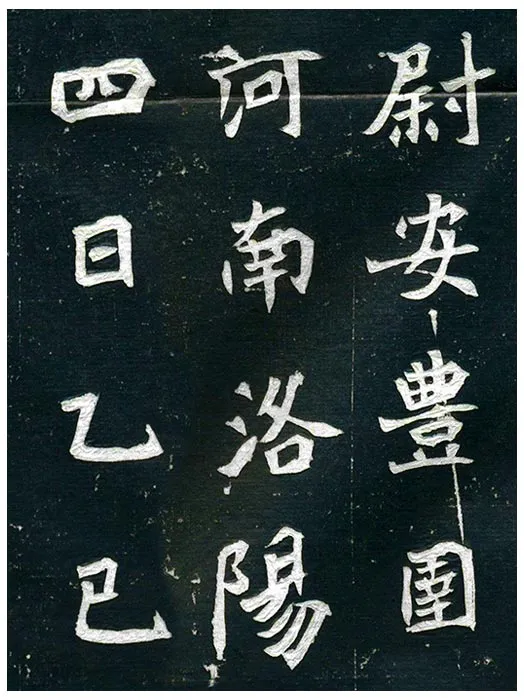 尉安豐圉
河南洛陽
四日乙巳